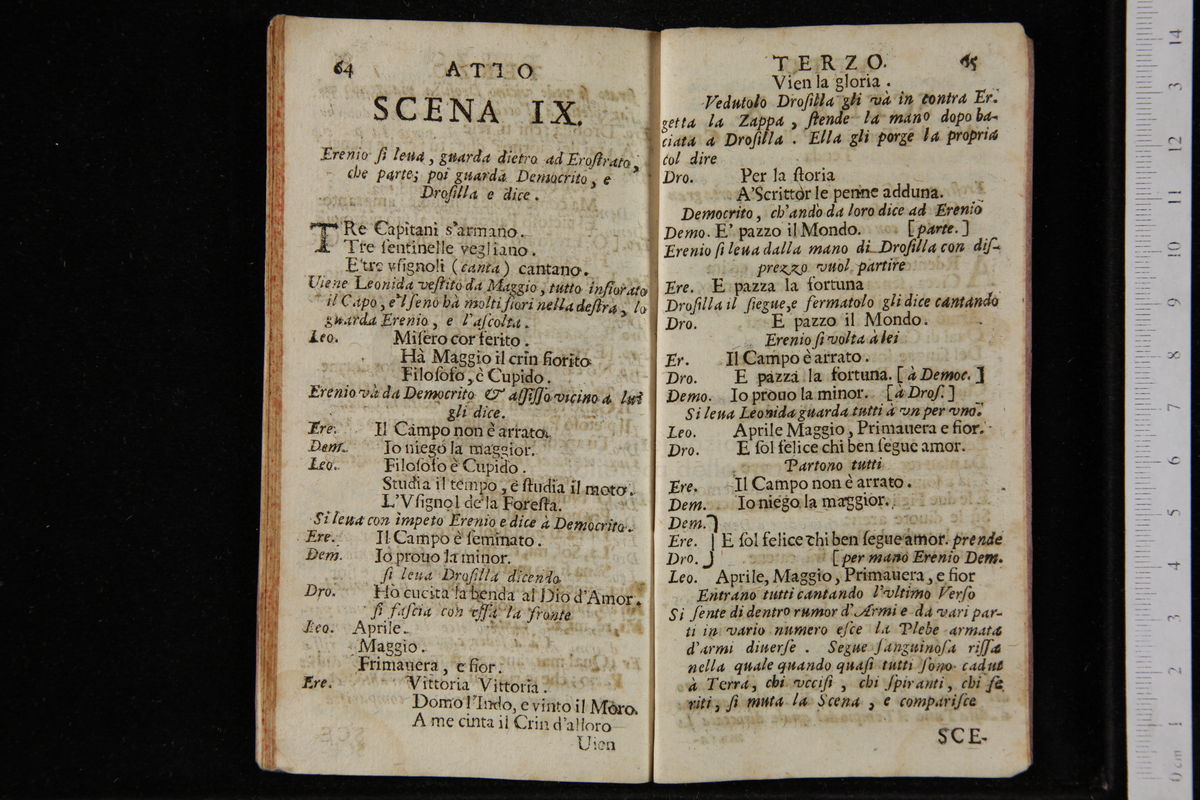 64 ATTO
SCENA IX.
Erenio ſi leua, guarda dietro ad Eroſtrato,
che parte; poi guarda Democrito, e
Droſilla e dice.
TRe Capitani s'armano.
Tre ſentinelle vegliano.
E tre vſignoli (canta) cantano.
Uiene Leonida veſtito da Maggio, tutto infiorato
il Capo, e'l ſeno hà molti fiori nella deſtra, lo
guarda Erenio, e l'aſcolta.
Leo. Miſero cor ferito.
Hà Maggio il crin fiorito
Filoſofo, è Cupido.
Erenio và da Democrito & aſſiſſo vicino a lui
gli dice.
Ere. Il Campo non è arrato.
Dem. Io niego la maggior.
Leo. Filoſofo è Cupido.
Studia il tempo, e ſtudia il moto.
L'Vſignol de la Foreſta.
Si leua con impeto Erenio e dice à Democrito.
Ere. Il Campo è ſeminato.
Dem. Io prouo la minor.
ſi leua Droſilla dicendo
Dro. Hò cucita la benda al Dio d'Amor.
ſi faſcia con eſſa la fronte
Leo. Aprile.
Maggio.
Primauera, e fior.
Ere. Vittoria Vittoria.
Domo l'Indo, e vinto il Moro.
A me cinta il Crin d'alloro
Uien
TERZO. 65
Vien la gloria.
Vedutolo Droſilla gli và in contra Er.
getta la Zappa, ſtende la mano dopo ba-
ciata a Droſilla. Ella gli porge la propria
col dire
Dro. Per la ſtoria
A'Scrittor le penne adduna.
Democrito, ch'andò da loro dice ad Erenio
Demo. E' pazzo il Mondo. [parte.]
Erenio ſi leua dalla mano di Droſilla con diſ-
prezzo vuol partire
Ere. E pazza la fortuna
Droſilla il ſiegue, e fermatolo gli dice cantando
Dro. E pazzo il Mondo.
Erenio ſi volta à lei
Er. Il Campo è arrato.
Dro. E pazza la fortuna. [à Democ.]
Demo. Io prouo la minor. [à Droſ.]
Si leua Leonida guarda tutti à vn per vno.
Leo. Aprile Maggio, Primauera e fior.
Dro. E ſol felice chi ben ſegue amor.
Partono tutti
Ere. Il Campo non è arrato.
Dem. Io niego la maggior.
Dem.
Ere. E ſol felice chi ben ſegue amor. prende
Dro. [per mano Erenio Dem.
Leo. Aprile, Maggio, Primauera, e fior
Entrano tutti cantando l'vltimo Verſo
Si ſente di dentro rumor d'Armi e da vari par-
ti in vario numero eſce la Plebe armata
d'armi diuerſe. Segue ſanguinoſa riſſa
nella quale quando quaſi tutti ſono cadut
à Terra, chi vcciſi, chi ſpiranti, chi fe
riti, ſi muta la Scena, e compariſce
SCE-